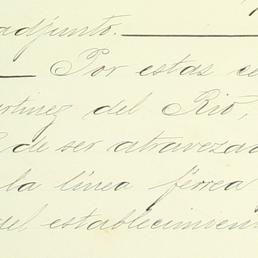 adjunto.
Por estas
del Rio,
de ser atravezad
la línea férrea
del establecimien